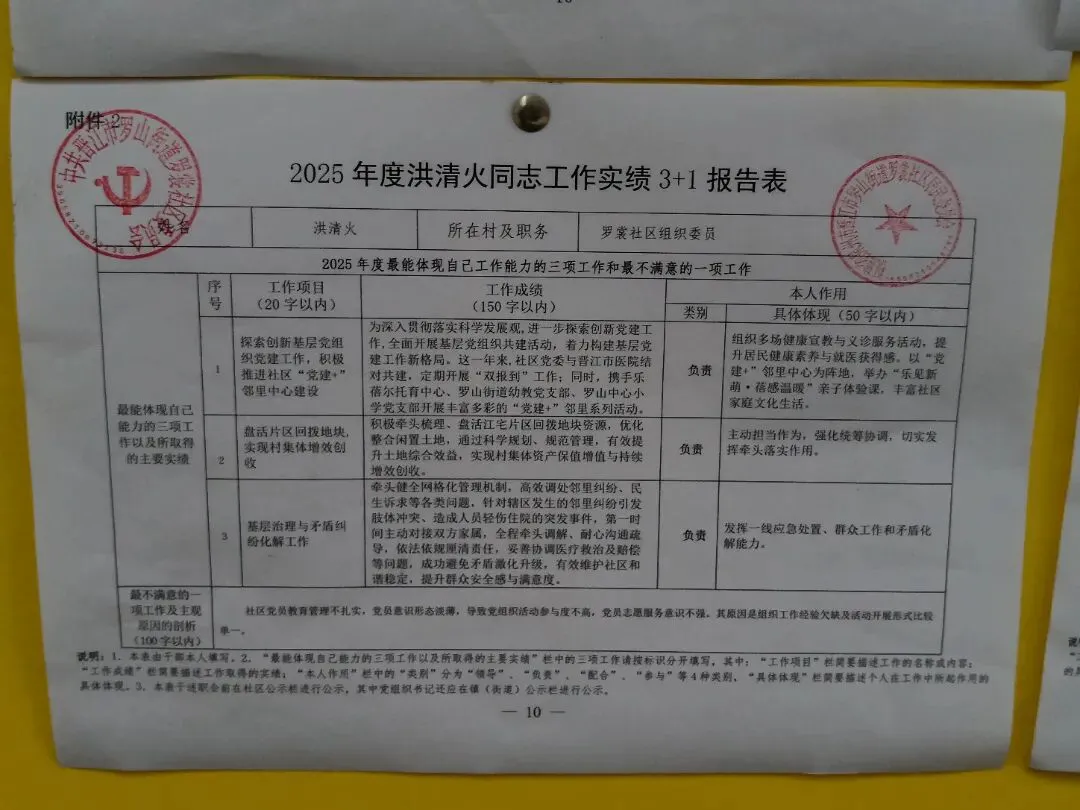 附件 2
2025 年度洪清火同志工作实绩 3+1 报告表
姓名
洪清火
所在村及职务
罗裳社区组织委员
2025 年度最能体现自己工作能力的三项工作和最不满意的一项工作
序号
工作项目
（20 字以内）
工作成绩
（150 字以内）
本人作用
类别
具体体现（50 字以内）
最能体现自己
能力的三项工
作以及所取得
的主要实绩
1
探索创新基层党组
织党建工作，积极
推进社区“党建+”
邻里中心建设
为深入贯彻落实科学发展观,进一步探索创新党建工
作,全面开展基层党组织共建活动，着力构建基层党
建工作新格局。这一年来,社区党委与晋江市医院结
对共建，定期开展“双报到”工作；同时，携手乐
蓓尔托育中心、罗山街道幼教党支部、罗山中心小
学党支部开展丰富多彩的“党建+”邻里系列活动。
负责
组织多场健康宣教与义诊服务活动，提
升居民健康素养与就医获得感。以“党
建+”邻里中心为阵地，举办“乐见新
萌·蓓感温暖”亲子体验课，丰富社区
家庭文化生活。
2
盘活片区回拨地块，
实现村集体增效创
收
积极牵头梳理、盘活江宅片区回拨地块资源，优化
整合闲置土地，通过科学规划、规范管理，有效提
升土地综合效益，实现村集体资产保值增值与持续
增效创收。
负责
主动担当作为，强化统筹协调，切实发
挥牵头落实作用。
3
基层治理与矛盾纠
纷化解工作
牵头健全网格化管理机制，高效调处邻里纠纷、民
生诉求等各类问题，针对辖区发生的邻里纠纷引发
肢体冲突、造成人员轻伤住院的突发事件，第一时
间主动对接双方家属，全程牵头调解、耐心沟通疏
导，依法依规厘清责任，妥善协调医疗救治及赔偿
等问题，成功避免矛盾激化升级，有效维护社区和
谐稳定，提升群众安全感与满意度。
负责
发挥一线应急处置、群众工作和矛盾化
解能力。
最不满意的一
项工作及主观
原因的剖析
（100 字以内）
社区党员教育管理不扎实，党员意识形态淡薄，导致党组织活动参与度不高，党员志愿服务意识不强。其原因是组织工作经验欠缺及活动开展形式比较
单一。
说明：1．本表由干部本人填写。2．“最能体现自己能力的三项工作以及所取得的主要实绩”栏中的三项工作请按标识分开填写，其中：“工作项目”栏简要描述工作的名称或内容；
“工作成绩”栏简要描述工作取得的实绩；“本人作用”栏中的“类别”分为“领导”、“负责”、“配合”、“参与”等 4 种类别，“具体体现”栏简要描述个人在工作中所起作用的
具体体现。3．本表于述职会前在社区公示栏进行公示，其中党组织书记还应在镇（街道）公示栏进行公示。
— 10 —
中共晋江市罗山街道罗裳社区委员会